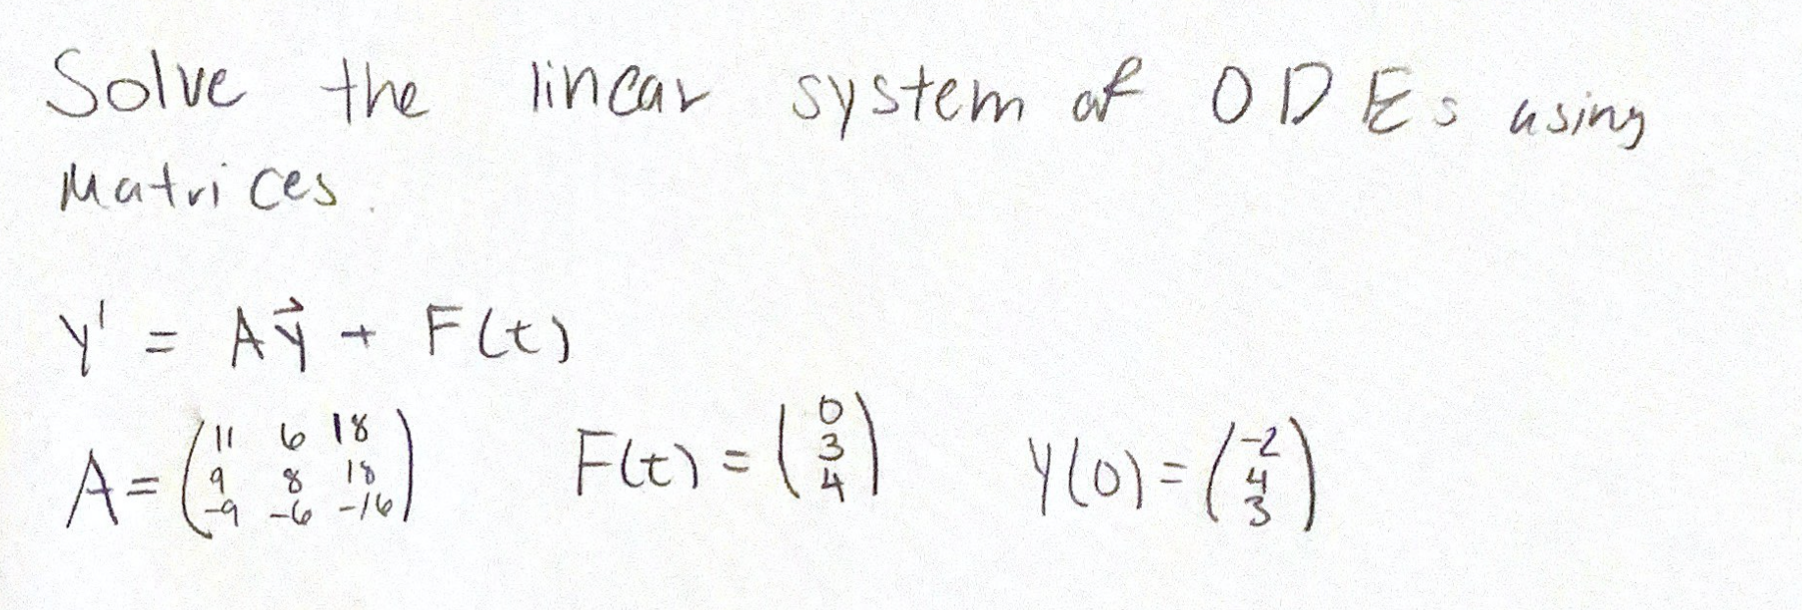 Solve the linear system of ODEs using
Matrices.
Y' = A\vec{Y} + F(t)
A = \begin{pmatrix} 11 & 6 & 18 \\ 9 & 8 & 18 \\ -9 & -6 & -16 \end{pmatrix} F(t) = \begin{pmatrix} 0 \\ 3 \\ 4 \end{pmatrix} Y(0) = \begin{pmatrix} -2 \\ 4 \\ 3 \end{pmatrix}